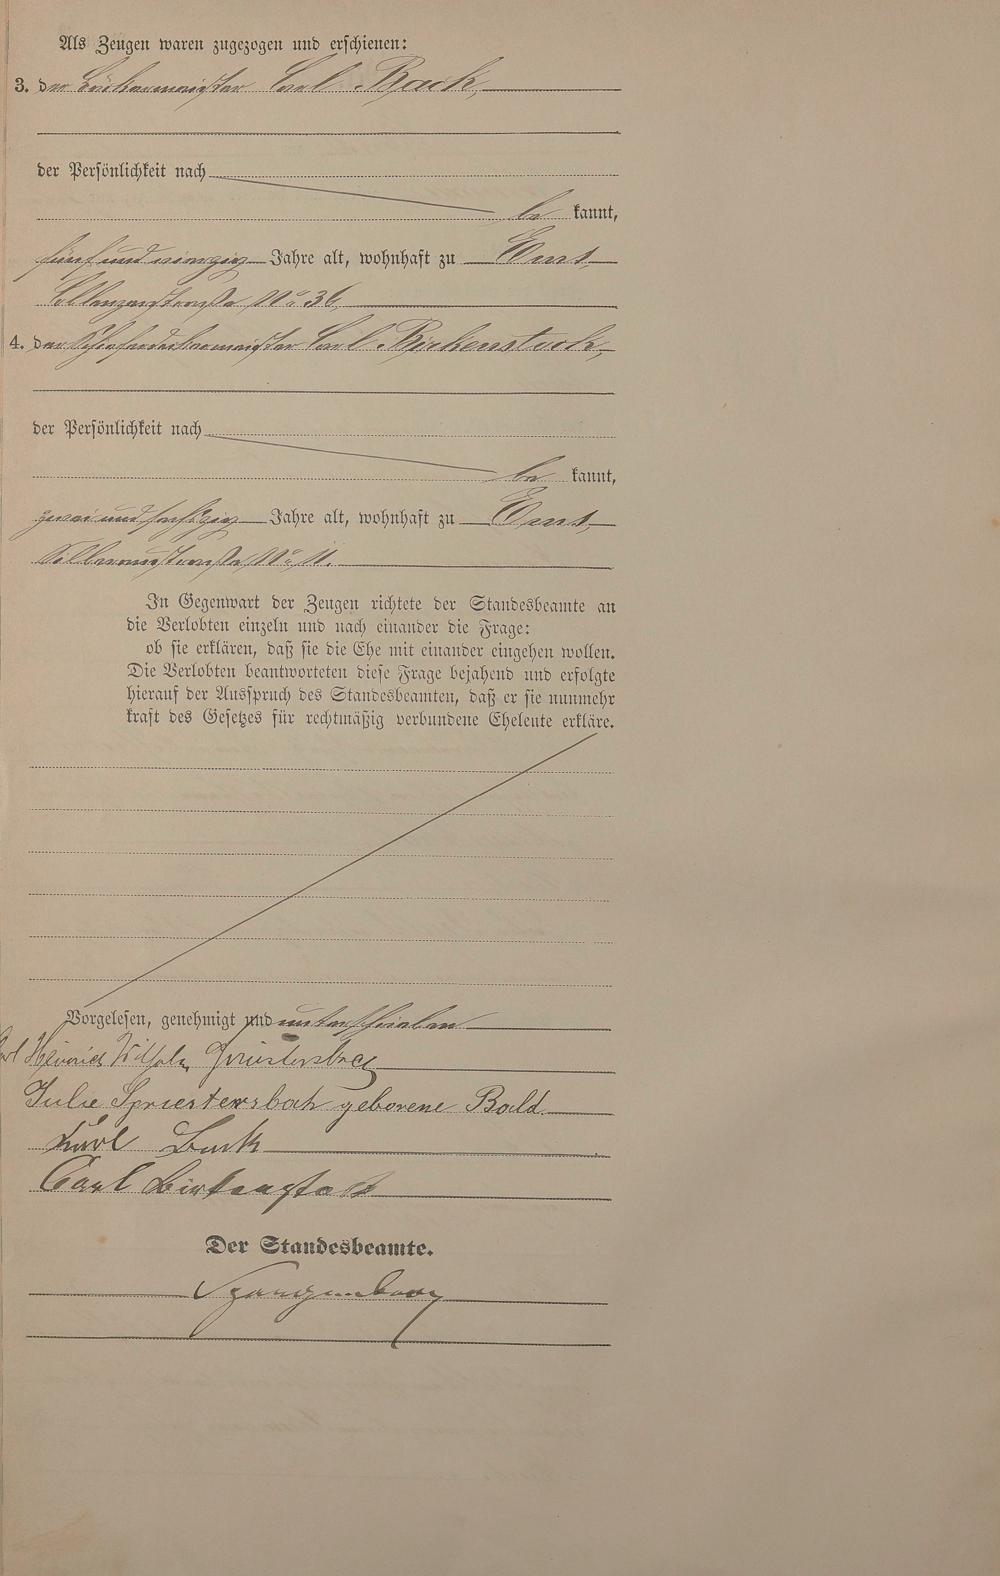 Als Zeugen waren zugezogen und erschienen:
3. der Bäckermeister Carl Back,
der Persönlichkeit nach
be kannt,
fünf und vierzig Jahre alt, wohnhaft zu Ems,
Coblenzerstraße No 36.
4. der Schieferdeckermeister Carl Birkenstock,
der Persönlichkeit nach
be kannt,
zwei und sechszig Jahre alt, wohnhaft zu Ems,
Silberaustraße No 11.
In Gegenwart der Zeugen richtete der Standesbeamte an
die Verlobten einzeln und nach einander die Frage:
ob sie erklären, daß sie die Ehe mit einander eingehen wollen.
Die Verlobten beantworteten diese Frage bejahend und erfolgte
hierauf der Ausspruch des Standesbeamten, daß er sie nunmehr
kraft des Gesetzes für rechtmäßig verbundene Eheleute erkläre.
Vorgelesen, genehmigt und unterschrieben
Heinrich Wilhelm Spriestersbach
Julie Spriestersbach geborene Bald.
Karl Back
Carl Birkenstock
Der Standesbeamte.
Spangenberg